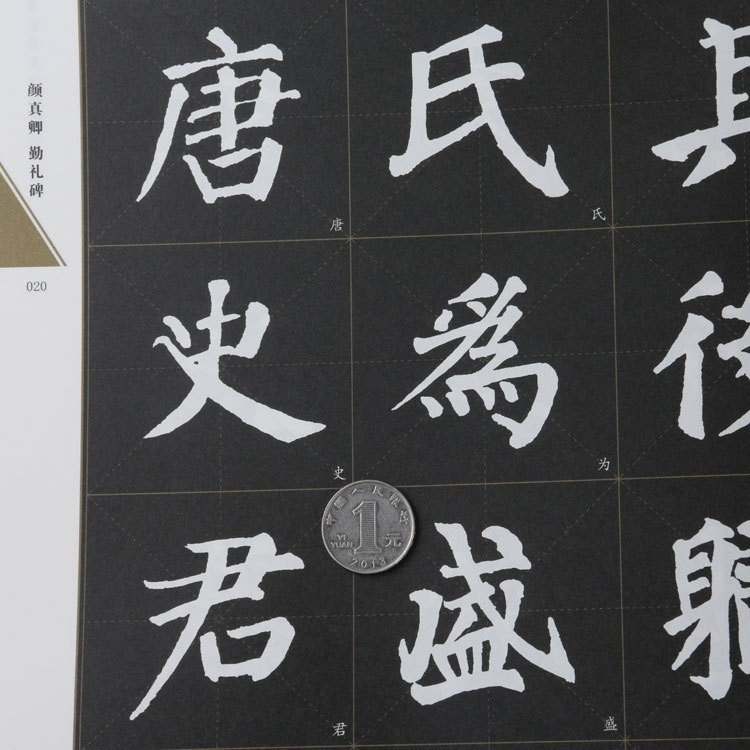 颜真卿 勤礼碑
020
唐 氏
唐 氏
史 為
史 为
君 盛
君 盛
中国人民银行
YI YUAN 1 元
2013